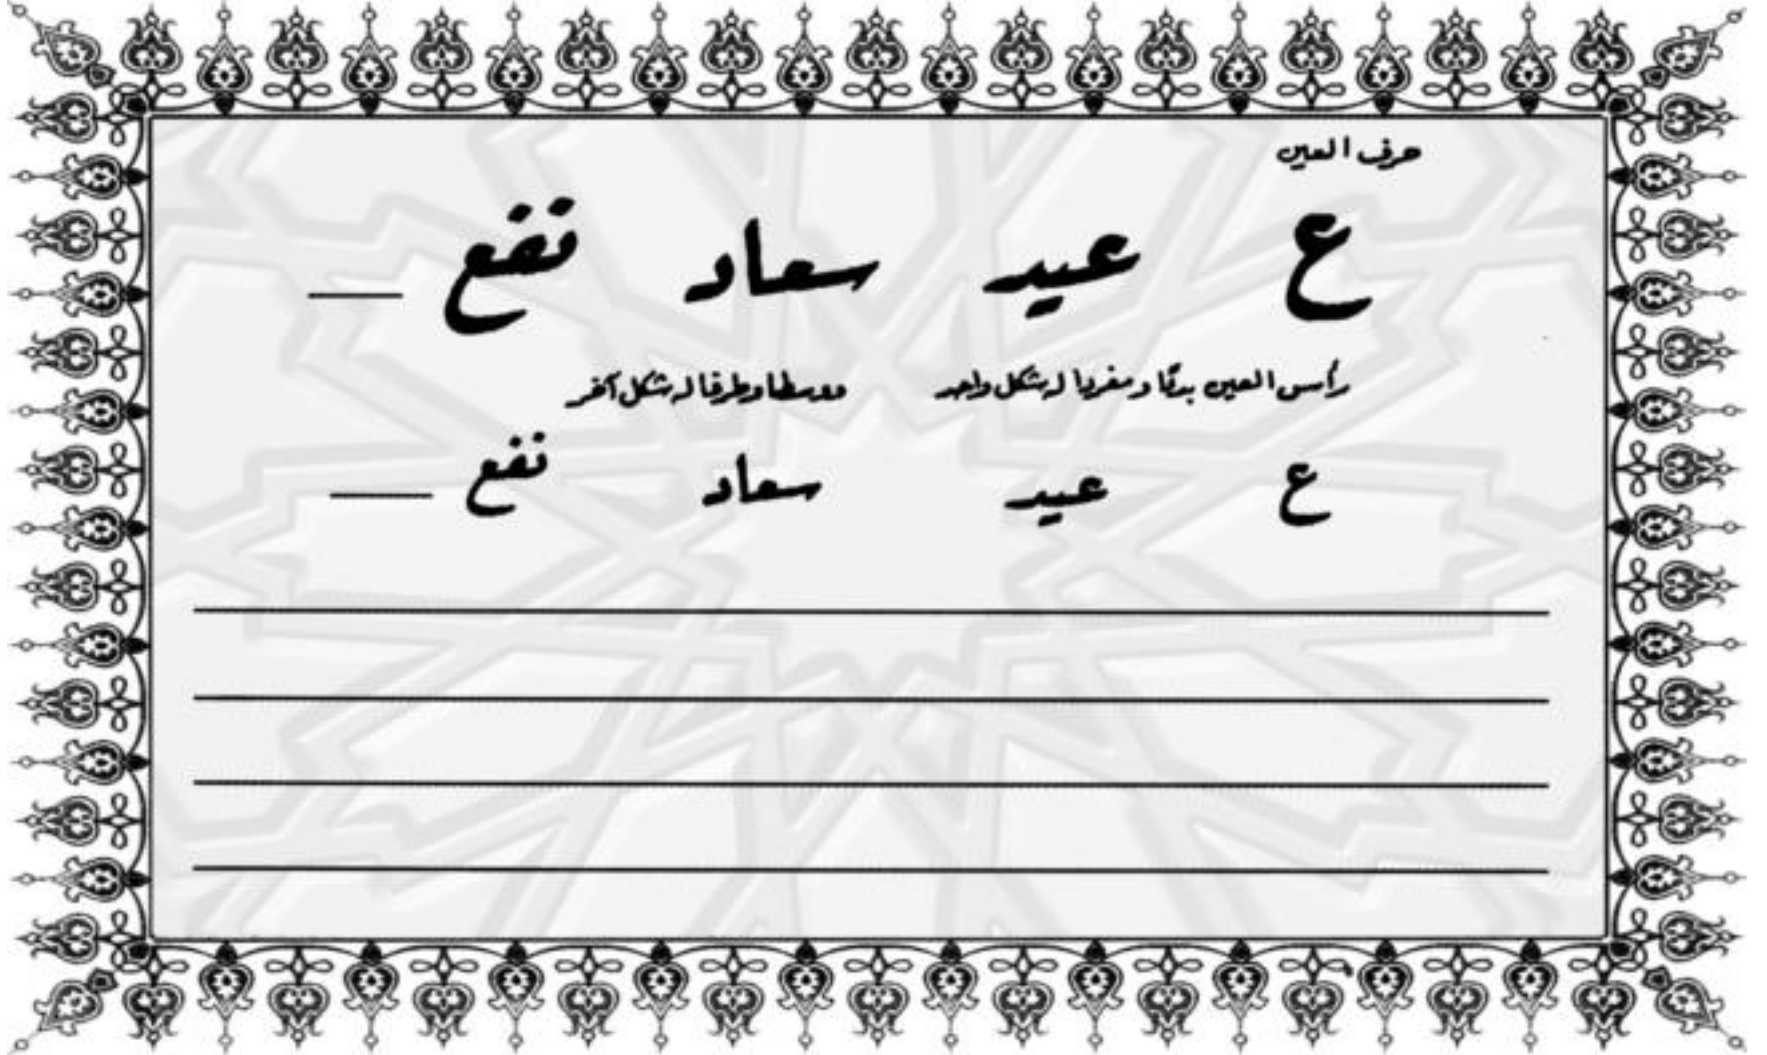 حرف العين
ع عيد سعاد نفع
رأس العين بدءًا ومفردا له شكل واحد ووسطا وطرفا له شكل آخر
ع عيد سعاد نفع